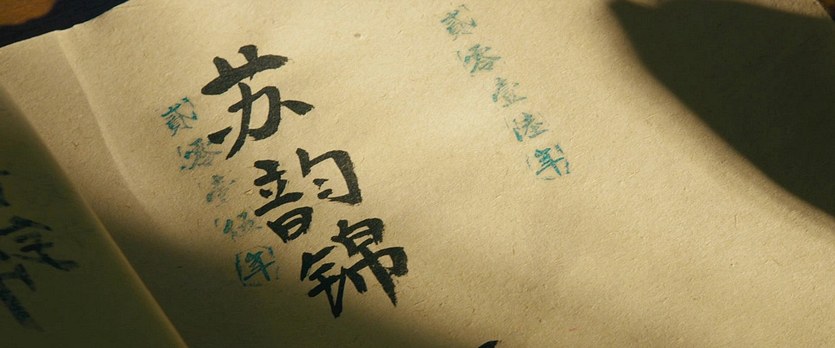 贰零壹陆年
苏韵锦
贰零壹伍年